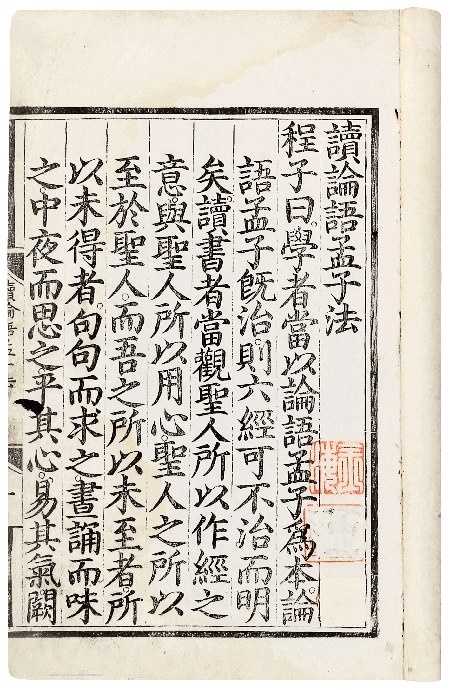 讀論語孟子法
程子曰學者當以論語孟子爲本論
語孟子旣治則六經可不治而明
矣讀書者當觀聖人所以作經之
意與聖人所以用心聖人之所以
至於聖人而吾之所以未至者所
以未得者句句而求之晝誦而味
之中夜而思之平其心易其氣闕